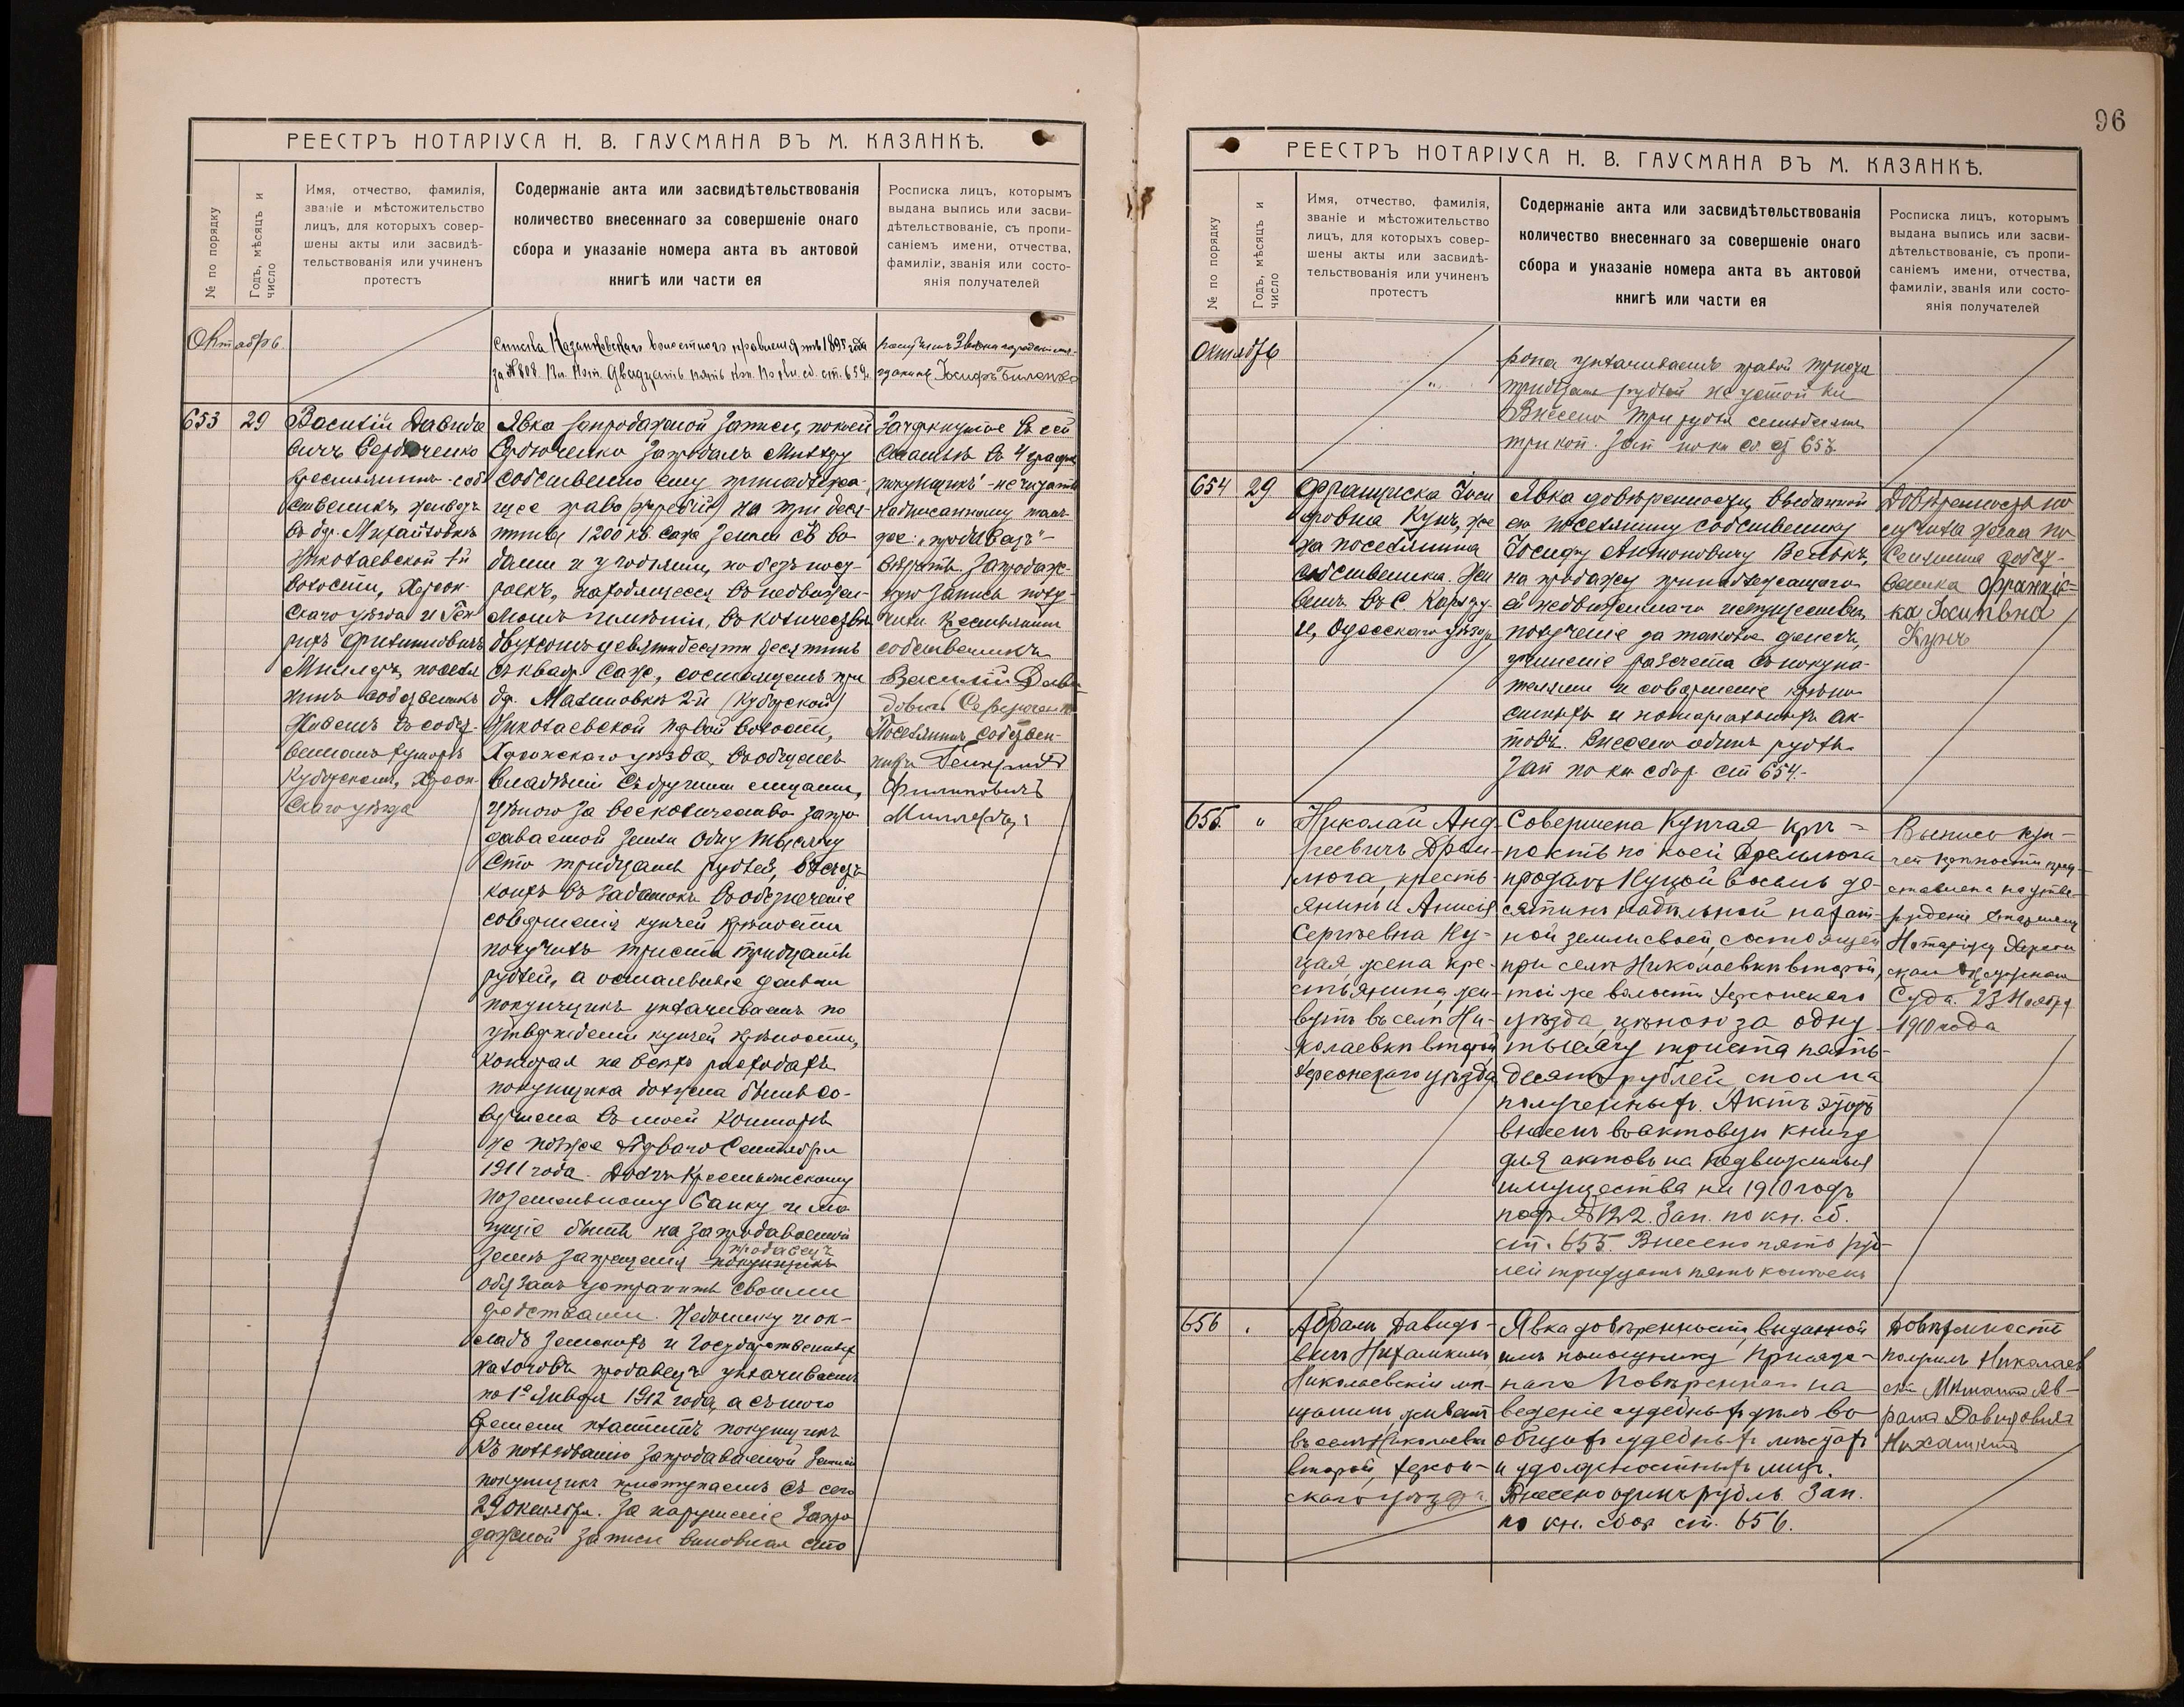 РЕЕСТРЪ НОТАРІУСА Н. В. ГАУСМАНА ВЪ М. КАЗАНКѢ.
№ по порядку
Годъ, мѣсяцъ и
число
Имя, отчество, фамилія,
званіе и мѣстожительство
лицъ, для которыхъ совер-
шены акты или засвидѣ-
тельствованія или учиненъ
протестъ
Содержаніе акта или засвидѣтельствованія
количество внесеннаго за совершеніе онаго
сбора и указаніе номера акта въ актовой
книгѣ или части ея
Росписка лицъ, которымъ
выдана выпись или засви-
дѣтельствованіе, съ пропи-
саніемъ имени, отчества,
фамиліи, званія или состо-
янія получателей
Октябрь.
Казанковскаго волостного правленія отъ 1895 года
за № 808. Двадцать пять коп. По кн. сб. ст. 652.
Іосифъ
653
29
Василій Давидо
вичъ Сердюченко
крестьянинъ-соб
ственникъ, живетъ
въ др. Михайловкѣ
Николаевской 1й
волости, Херсон-
скаго уѣзда и Ген
рихъ Филипповичъ
Миллеръ, поселя
нинъ собственникъ
живетъ въ собст-
венномъ хуторѣ
Херсон-
скаго уѣзда
Явка запродажной записи, по коей
Сердюченко запродалъ Миллеру
собственно ему принадлежа-
щее право (жребій) на три деся-
тины 1200 кв. саж земли съ во-
дами и угодьями, но безъ пост-
роекъ, находящееся въ недвижи-
момъ имѣніи, въ количествѣ
двухсотъ девяти десяти десятинъ
съ квадр. саж, состоящемъ при
др. Малиновкѣ 2-й
Николаевской первой волости,
Херсонскаго уѣзда, въ общемъ
владѣніи съ другими лицами,
цѣною за все количество запро
даваемой земли одну тысячу
сто тридцать рублей, въ счетъ
коихъ въ задатокъ въ обезпеченіе
совершенія купчей крѣпости
получилъ триста тридцать
рублей, а остальныя деньги
покупщикъ уплачиваетъ по
утвержденіи купчей крѣпости,
которая на всѣхъ расходахъ
покупщика должна быть со-
вершена въ моей конторѣ
не позже перваго Сентября
1911 года. Долгъ Крестьянскому
Поземельному банку и мо-
гущіе быть на запродаваемой
землѣ запрещенія покупщикъ
продавецъ
обязанъ устранить своими
средствами. Недоимку и ок-
ладъ земскихъ и государственныхъ
налоговъ продавецъ уплачиваетъ
по 1е Января 1912 года, а съ того
времени платитъ покупщикъ
Къ пользованію запродаваемой землей
покупщикъ приступаетъ съ сего
29 октября. За нарушеніе запро
дажной записи виновная сто
Зачеркнутое въ сей
статьѣ въ 4 графѣ
„покупщикъ" - не читать
надписанному тамъ
же: „продавецъ" -
вѣрить. Запродаж-
ную запись полу-
чили крестьянинъ
собственникъ
Василій Дави
довичъ Сердюченко
Поселянинъ собствен-
никъ Генрихъ
Филиповичъ
Миллеръ
96
РЕЕСТРЪ НОТАРІУСА Н. В. ГАУСМАНА ВЪ М. КАЗАНКѢ.
№ по порядку
Годъ, мѣсяцъ и
число
Имя, отчество, фамилія,
званіе и мѣстожительство
лицъ, для которыхъ совер-
шены акты или засвидѣ-
тельствованія или учиненъ
протестъ
Содержаніе акта или засвидѣтельствованія
количество внесеннаго за совершеніе онаго
сбора и указаніе номера акта въ актовой
книгѣ или части ея
Росписка лицъ, которымъ
выдана выпись или засви-
дѣтельствованіе, съ пропи-
саніемъ имени, отчества,
фамиліи, званія или состо-
янія получателей
Октябрь
рона уплачиваетъ правой триста
тридцать рублей неустойки
Внесено три рубля семьдесятъ
три коп. Зап по кн сб ст 653
654
29
Франциска Іоси
фовна Кунъ, же
на поселянина
собственника. Жи
ветъ въ с. Карлсру
е, Одесскаго уѣзда
Явка довѣренности, выданной
ею поселянину собственнику
Іосифу Антоновичу
на продажу принадлежащаго
ей недвижимаго имущества,
полученіе за таковое денегъ,
учиненіе разсчета съ покупа-
телями и совершеніе крѣпо-
стныхъ и нотаріальныхъ ак-
товъ. Внесено одинъ рубль
Зап по кн сбор ст 654.-
Довѣренность по
лучила жена по
селянина собст-
венника Францис-
ка
Кунъ
655.
"
Николай Анд-
реевичъ Дрем-
люга, кресть-
янинъ и Анисія
Сергѣевна Ку-
цая, жена кре-
стьянина, жи-
вутъ въ селѣ Ни-
колаевкѣ второй
Херсонскаго уѣзда
Совершена Купчая крѣ-
пость по коей Дремлюга
продалъ Куцой восемь де-
сятинъ надѣльной пахат-
ной земли своей, состоящей
при селѣ Николаевкѣ второй,
той же волости Херсонскаго
уѣзда, цѣною за одну
тысячу триста пять-
десятъ рублей, сполна
полученныхъ. Актъ этотъ
внесенъ въ актовую книгу
для актовъ на недвижимыя
имущества на 1910 годъ
подъ № 122. Зап. по кн. сб.
ст. 655. Внесено пять руб-
лей тридцать пять копѣекъ
Выпись куп-
чей крѣпости пред-
ставлена на утвер-
жденіе Старшему
Нотаріусу Херсон
скаго Окружнаго
Суда. 23 Ноября
1910 года
656
Абрамъ Давидо-
вичъ
Николаевскій мѣ-
щанинъ, живетъ
въ селѣ Николаевкѣ
второй, Херсон-
скаго уѣзда.
Явка довѣренности, выданной
имъ помощнику Присяж-
наго Повѣреннаго на
веденіе судебныхъ дѣлъ во
общихъ судебныхъ мѣстахъ
и у должностныхъ лицъ.
Внесено одинъ рубль. Зап.
по кн. сбор ст. 656.
Довѣренность
получилъ Николаев
скій Мѣщанинъ Аб-
рамъ Давидовичъ